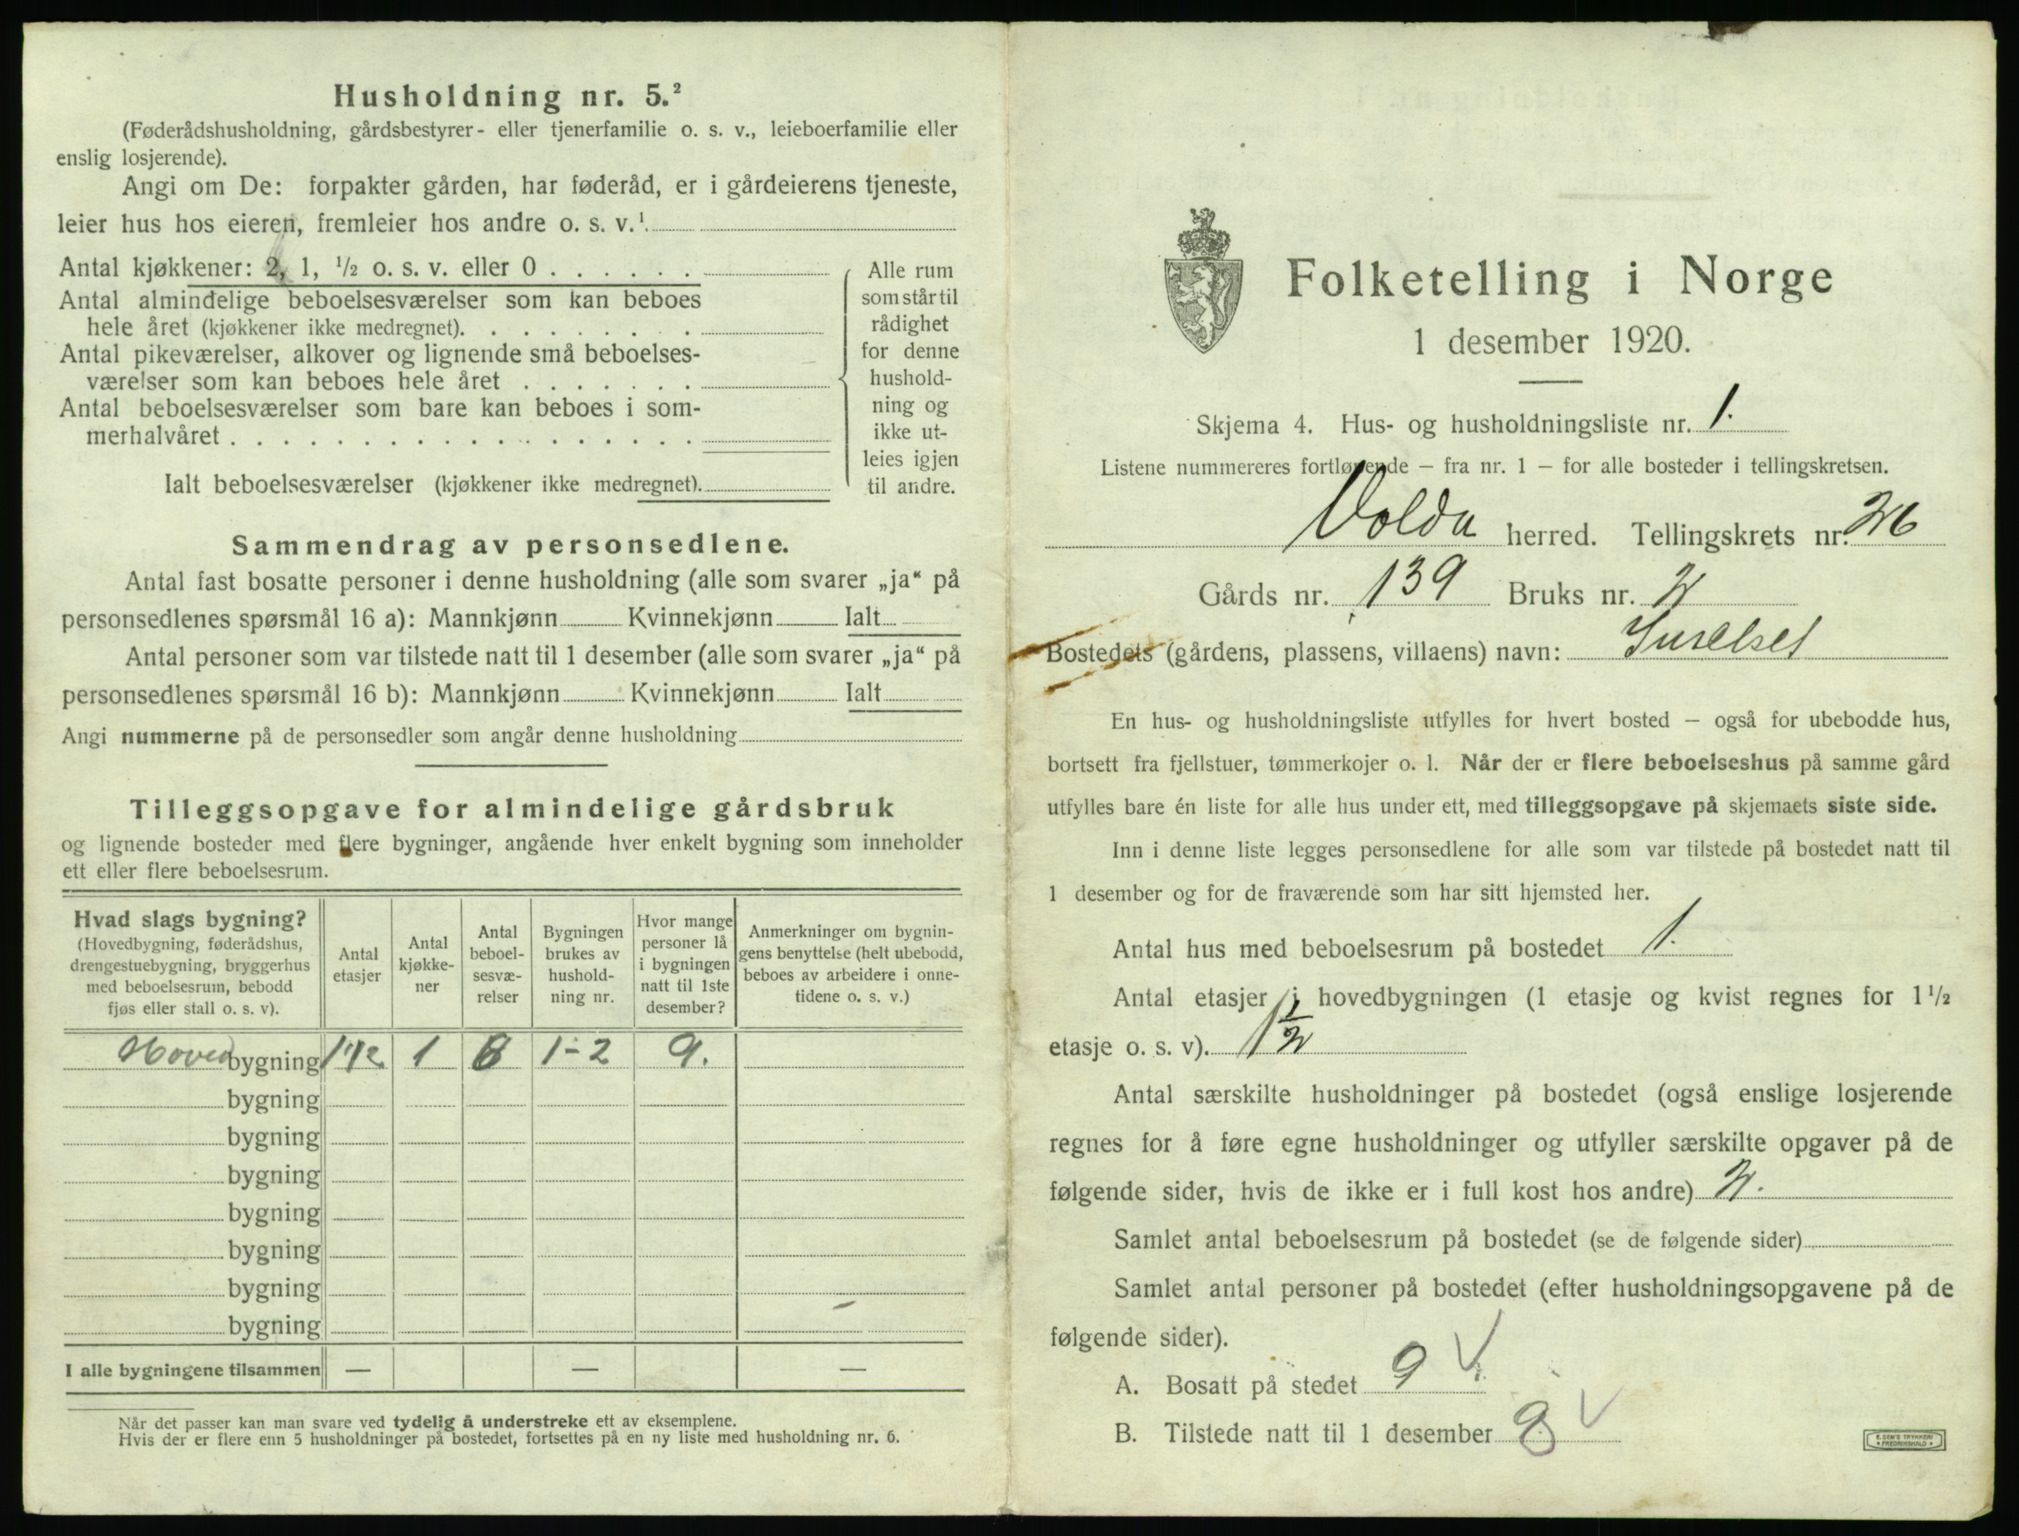 Husholdning nr. 5.²
(Føderådshusholdning, gårdsbestyrer- eller tjenerfamilie o. s. v., leieboerfamilie eller
enslig losjerende).
Angi om De: forpakter gården, har føderåd, er i gårdeierens tjeneste,
leier hus hos eieren, fremleier hos andre o. s. v.¹
Antal kjøkkener: 2, 1, ½ o. s. v. eller 0 . . . . . .
Antal almindelige beboelsesværelser som kan beboes
hele året (kjøkkener ikke medregnet). . . . . . . . .
Antal pikeværelser, alkover og lignende små beboelses-
værelser som kan beboes hele året . . . . . . .
Antal beboelsesværelser som bare kan beboes i som-
merhalvåret . . . . . . . . . . . . . . . . . .
Ialt beboelsesværelser (kjøkkener ikke medregnet).
Alle rum
som står til
rådighet
for denne
hushold-
ning og
ikke ut-
leies igjen
til andre.
Sammendrag av personsedlene.
Antal fast bosatte personer i denne husholdning (alle som svarer „ja“ på
personsedlenes spørsmål 16 a): Mannkjønn Kvinnekjønn Ialt
Antal personer som var tilstede natt til 1 desember (alle som svarer „ja“ på
personsedlenes spørsmål 16 b): Mannkjønn Kvinnekjønn Ialt
Angi nummerne på de personsedler som angår denne husholdning
Tilleggsopgave for almindelige gårdsbruk
og lignende bosteder med flere bygninger, angående hver enkelt bygning som inneholder
ett eller flere beboelsesrum.
Hvad slags bygning?
(Hovedbygning, føderådshus,
drengestuebygning, bryggerhus
med beboelsesrum, bebodd
fjøs eller stall o. s. v).
Antal
etasjer
Antal
kjøkke-
ner
Antal
beboel-
sesvæ-
relser
Bygningen
brukes av
hushold-
ning nr.
Hvor mange
personer lå
i bygningen
natt til 1ste
desember?
Anmerkninger om bygnin-
gens benyttelse (helt ubebodd,
beboes av arbeidere i onne-
tidene o. s. v.)
Hoved bygning 1 1/2 1 6 1-2 9.
bygning
bygning
bygning
bygning
bygning
bygning
bygning —
I alle bygningene tilsammen — — —
Når det passer kan man svare ved tydelig å understreke ett av eksemplene.
Hvis der er flere enn 5 husholdninger på bostedet, fortsettes på en ny liste med husholdning nr. 6.
Folketelling i Norge
1 desember 1920.
Skjema 4. Hus- og husholdningsliste nr. 1.
Listene nummereres fortløpende – fra nr. 1 – for alle bosteder i tellingskretsen.
Volda herred. Tellingskrets nr. 26
Gårds nr. 139 Bruks nr. 2
Bostedets (gårdens, plassens, villaens) navn:
En hus- og husholdningsliste utfylles for hvert bosted – også for ubebodde hus,
bortsett fra fjellstuer, tømmerkojer o. l. Når der er flere beboelseshus på samme gård
utfylles bare én liste for alle hus under ett, med tilleggsopgave på skjemaets siste side.
Inn i denne liste legges personsedlene for alle som var tilstede på bostedet natt til
1 desember og for de fraværende som har sitt hjemsted her.
Antal hus med beboelsesrum på bostedet 1.
Antal etasjer i hovedbygningen (1 etasje og kvist regnes for 1½
etasje o. s. v). 1 1/2
Antal særskilte husholdninger på bostedet (også enslige losjerende
regnes for å føre egne husholdninger og utfyller særskilte opgaver på de
følgende sider, hvis de ikke er i full kost hos andre) 2.
Samlet antal beboelsesrum på bostedet (se de følgende sider)
Samlet antal personer på bostedet (efter husholdningsopgavene på de
følgende sider).
A. Bosatt på stedet 9 V
B. Tilstede natt til 1 desember 9 V
E. SEM'S TRYKKERI
• FREDRIKSHALD •